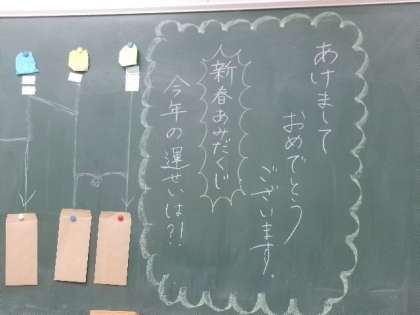 あけまして
おめでとう
ございます。
新春あみだくじ
今年の運せいは?!